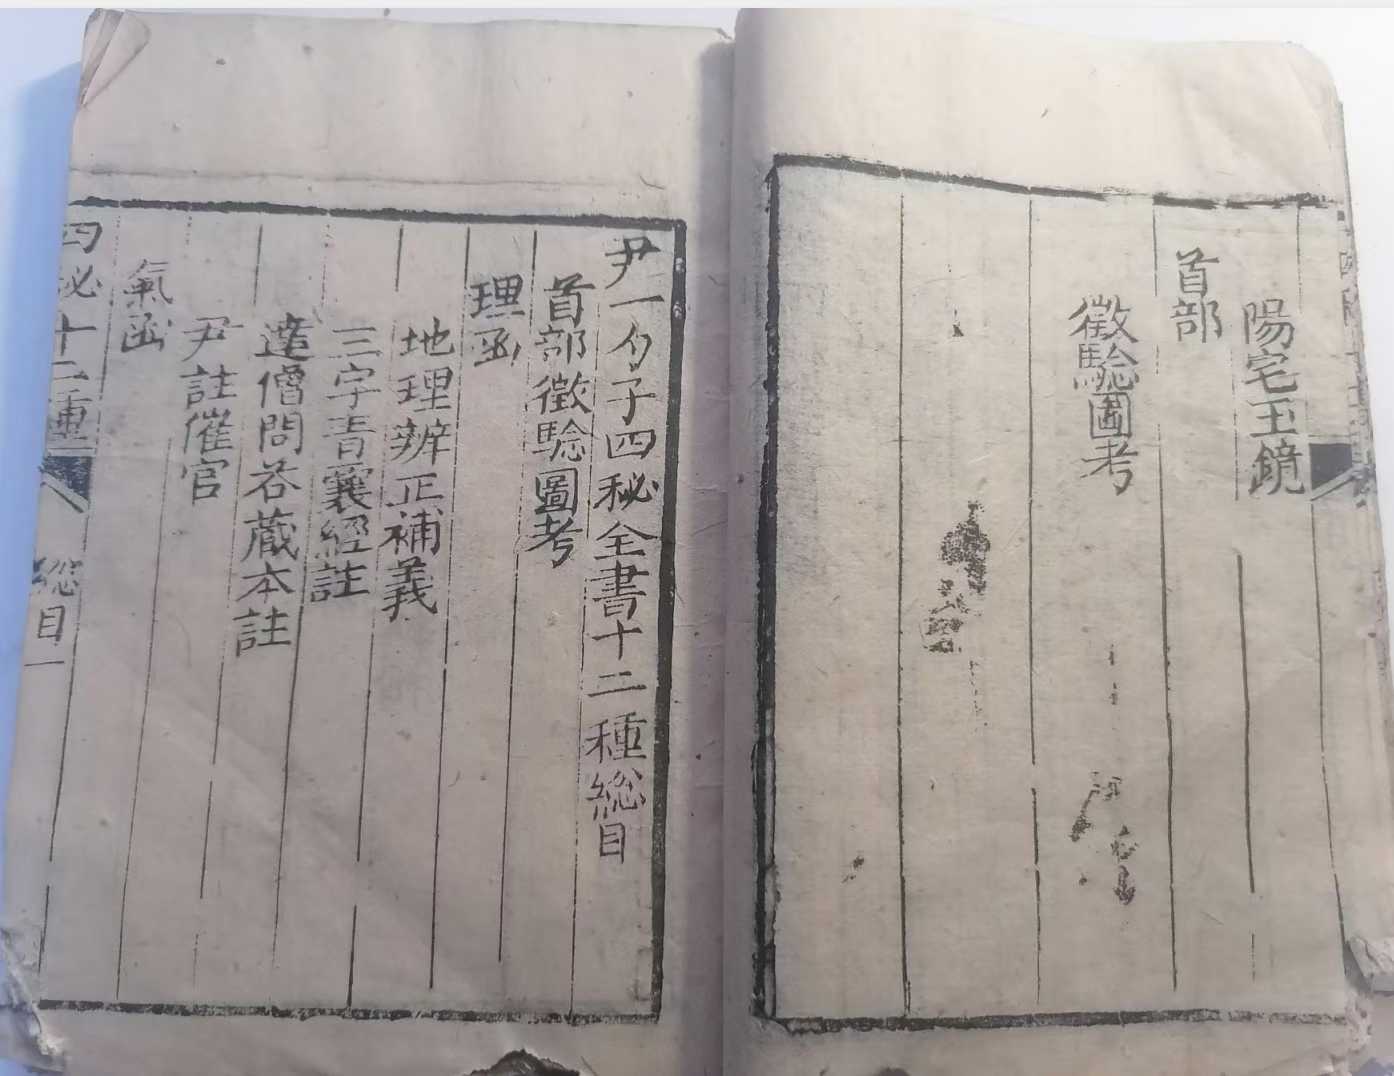 陽宅玉鏡
首部
徵驗圖考
尹一勺子四秘全書十二種総目
首部徵驗圖考
理函
地理辨正補義
三字青囊經註
遼僧問荅蔵本註
尹註催官
氣函
四秘十二種
総目一